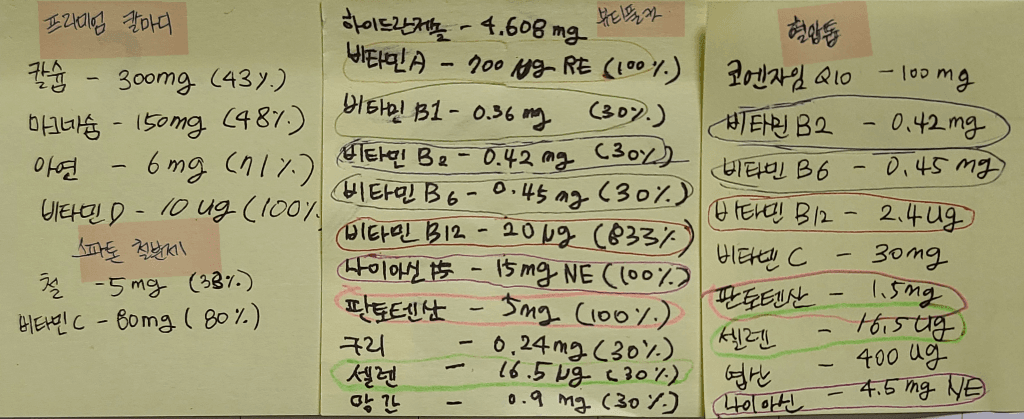 프리미엄 칼마디
칼슘 - 300mg (43%)
마그네슘 - 150mg (48%)
아연 - 6mg (71%)
비타민 D - 10 ug (100%
스파톤 철분제
철 - 5mg (38%)
비타민 C - 80mg (80%)
뷰티플러
하이드란제놀 - 4.608mg
비타민 A - 700 μg RE (100%)
비타민 B1 - 0.36 mg (30%)
비타민 B2 - 0.42 mg (30%)
비타민 B6 - 0.45 mg (30%)
비타민 B12 - 20 μg (833%)
나이아신 - 15mg NE (100%)
판토텐산 - 5mg (100%)
구리 - 0.24mg (30%)
셀렌 - 16.5 μg (30%)
망간 - 0.9 mg (30%)
혈압톱
코엔자임 Q10 - 100mg
비타민 B2 - 0.42mg
비타민 B6 - 0.45mg
비타민 B12 - 2.4ug
비타민 C - 30mg
판토텐산 - 1.5mg
셀렌 - 16.5 ug
엽산 - 400 ug
나이아신 - 4.5 mg NE